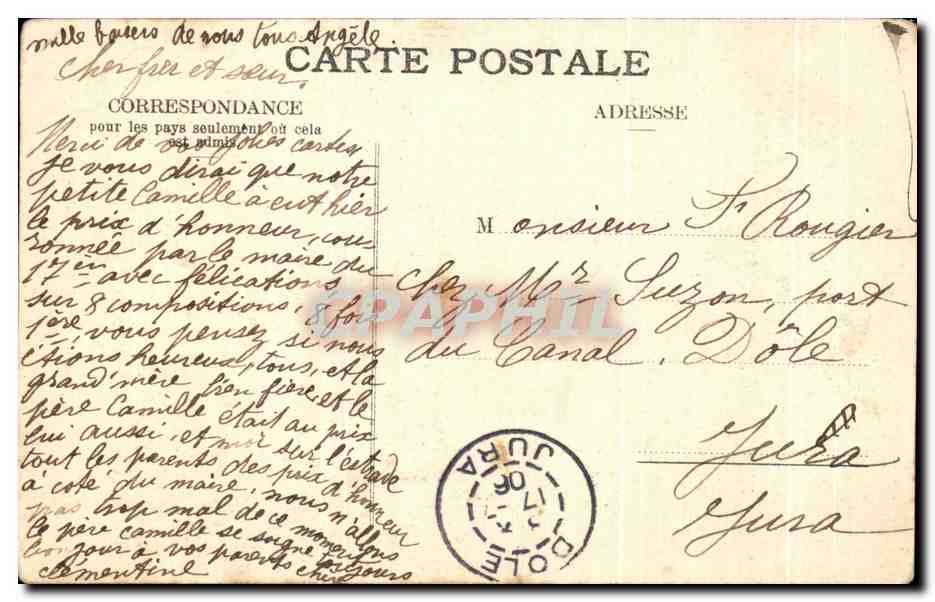 mille baisers de nous tous Angèle
CARTE POSTALE
Cher frer et sœur
CORRESPONDANCE
pour les pays seulement où cela
est admis
ADRESSE
Merci de vos jolies cartes
je vous dirai que notre
petite Camille à eut hier
le prix d'honneur, cou-
ronnée par le maire du
17 èm avec félications
sur 8 compositions, 8 fois
1ère, vous pensez si nous
étions heureux, tous, et la
grand'mère bien fière, et le
père Camille était au prix
lui aussi, et moi sur l'estrade
tout les parents des prix d'honneur
à coté du maire, nous n'allons
pas trop mal de ce moment
le père camille se soigne toujours
bonjour à vos parents chéris
Clementine
Monsieur F. Rougier
chez Mr Suzon, port
du Canal, Dôle
Jura
Jura
CPAPHIL
DOLE
17
06
JURA